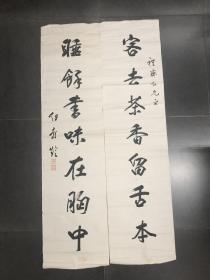 客去茶香留舌本
睡餘書味在胸中